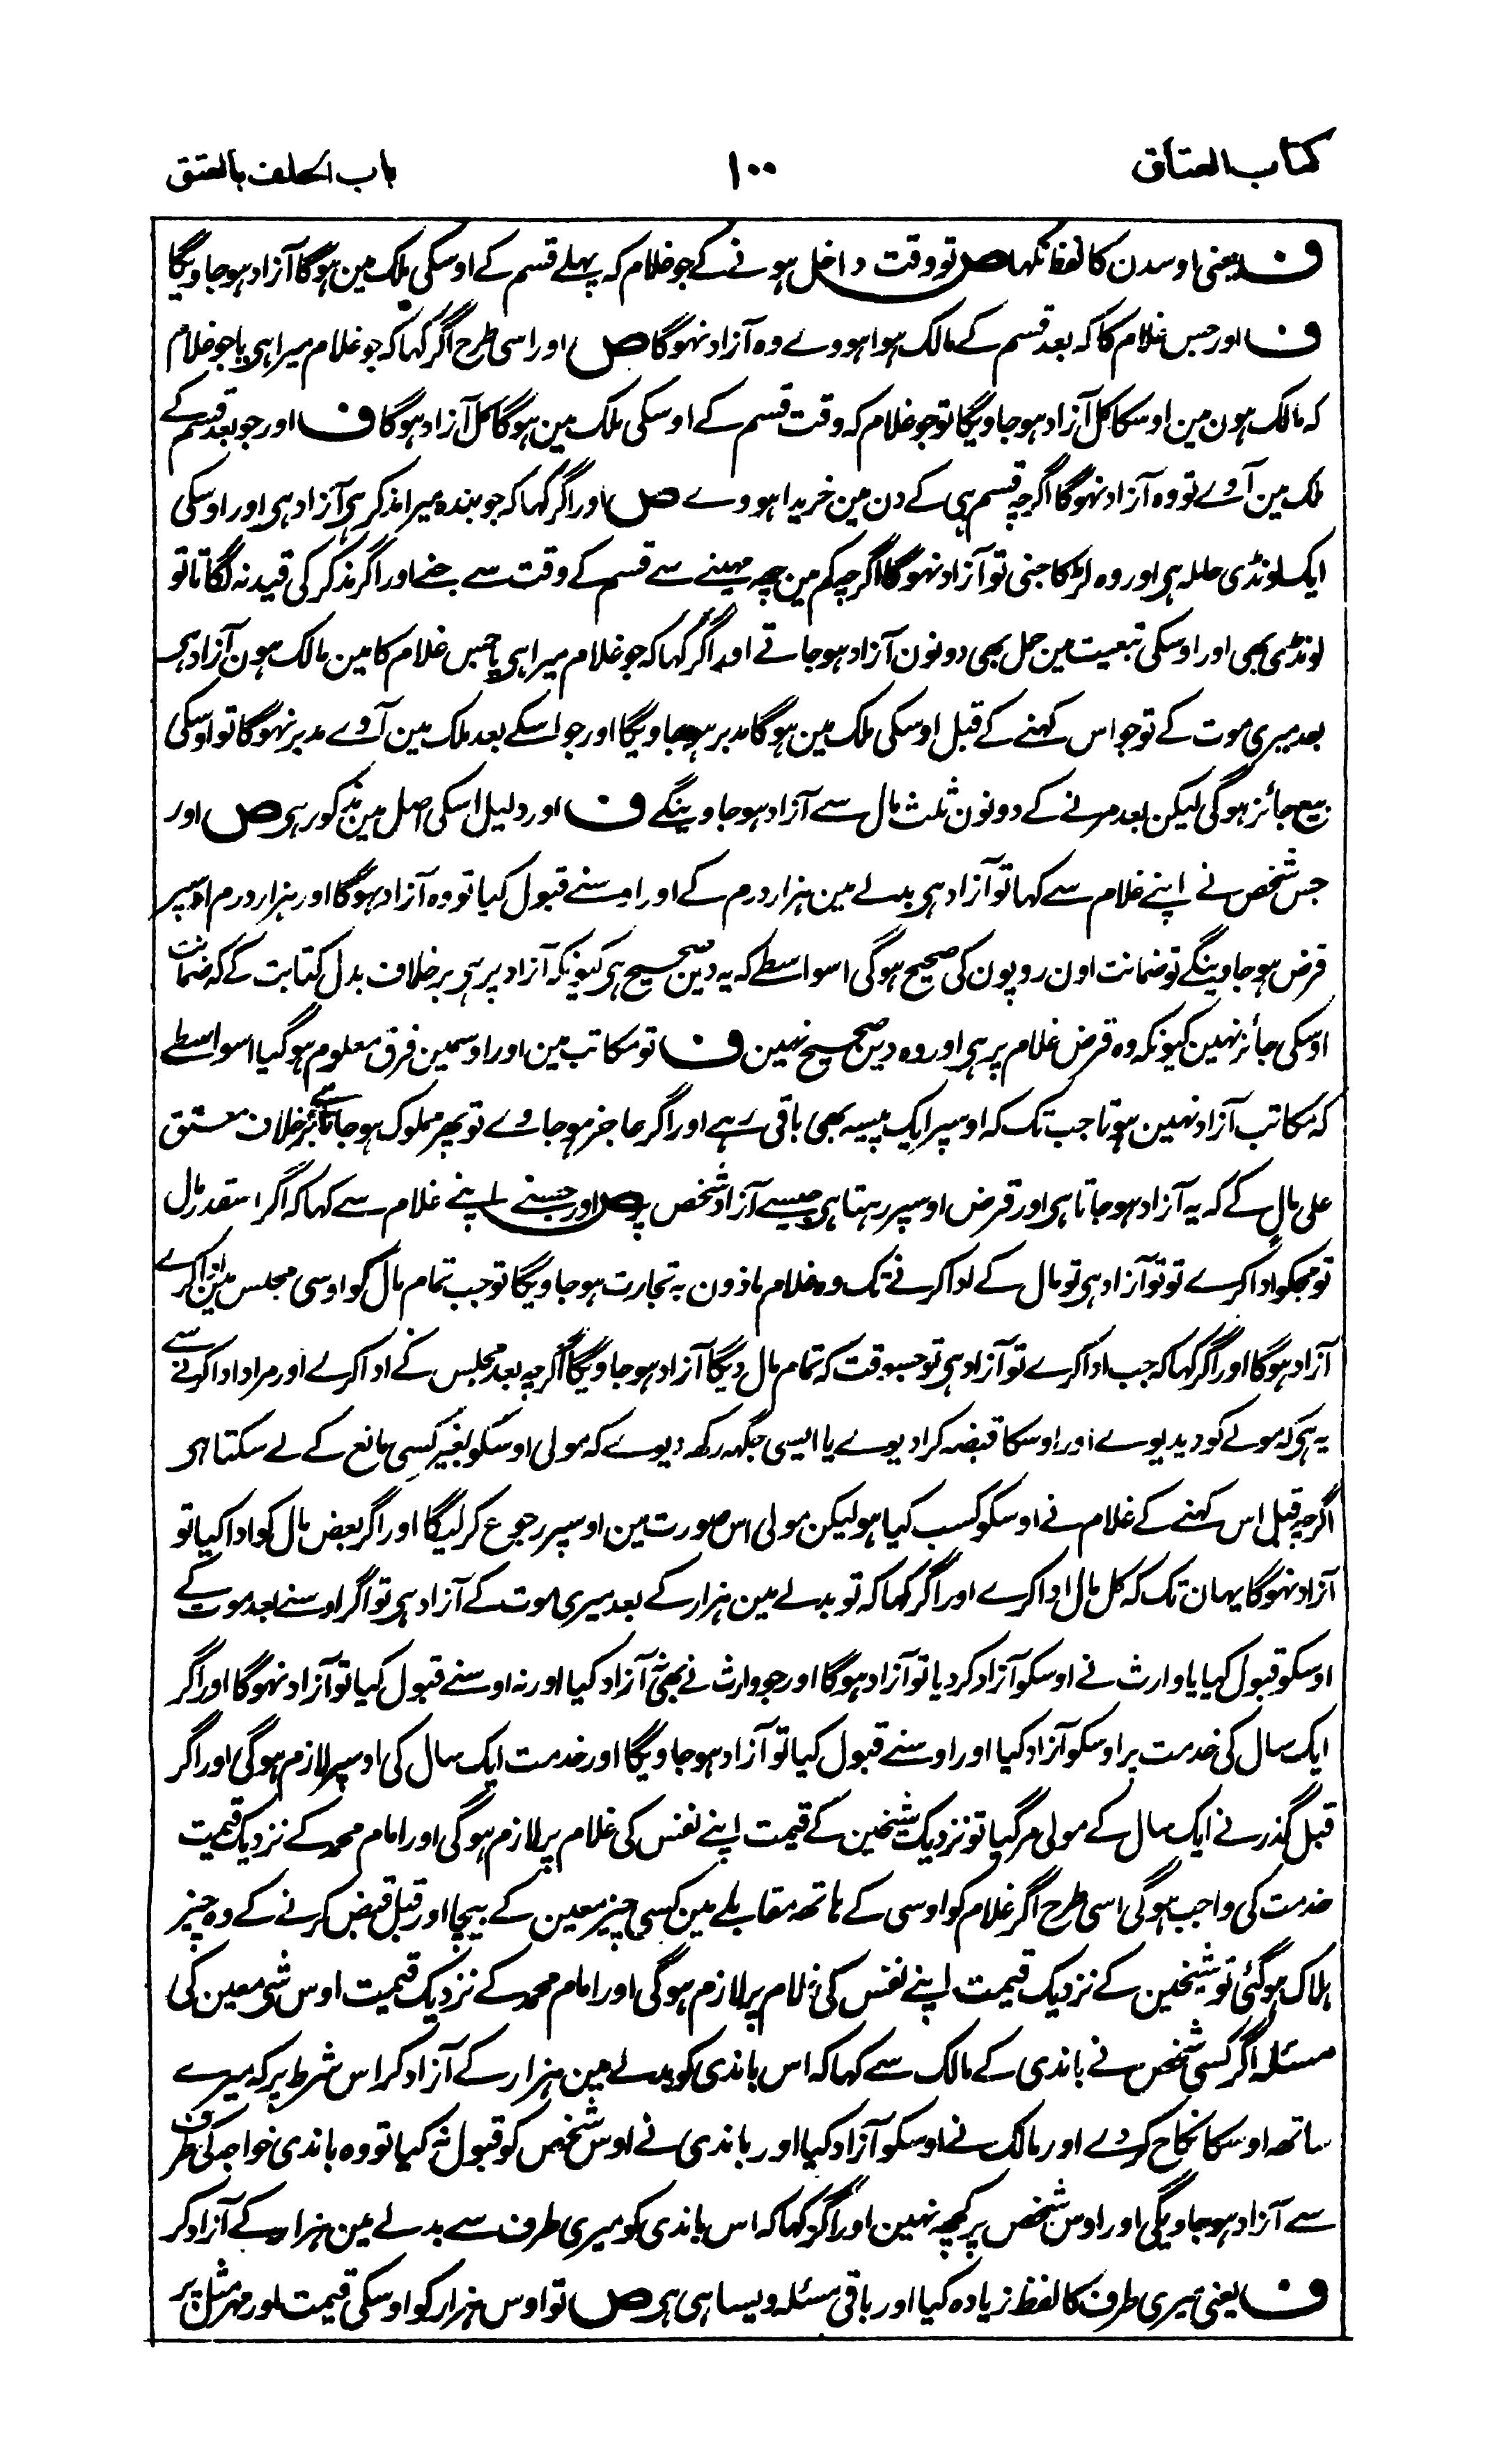 کتاب العتاق
۱۰۰
باب الحلف بالعتق
ف یعنی اوسدن کا لفظ نکہا ص تو وقت داخل ہونے کے جو غلام کہ پہلے قسم کے اوسکی ملک مین ہوگا آزاد ہو جاویگا
ف اور جس غلام کا کہ بعد قسم کے مالک ہوا ہووے وہ آزاد نہوگا ص اور اسی طرح اگر کہا کہ جو غلام میرا ہی یا جو غلام
کہ مالک ہون مین اوسکا کل آزاد ہو جاویگا تو جو غلام کہ وقت قسم کے اوسکی ملک مین ہوگا کل آزاد ہوگا ف اور جو بعد قسم کے
ملک مین آوے تو وہ آزاد نہوگا اگرچہ قسم ہی کے دن مین خریدا ہووے ص اور اگر کہا کہ جو بندہ میرا مذکر ہی آزاد ہی اور اوسکی
ایک لونڈی حاملہ ہی اور وہ لڑکا جنی تو آزاد نہوگا اگرچہ کم مین چھ مہینے سے قسم کے وقت سے جنے اور اگر مذکر کی قید نہ لگاتا تو
لونڈی بھی اور اوسکی تبعیت مین حمل بھی دونون آزاد ہو جاتے اور اگر کہا کہ جو غلام میرا ہی یا جس غلام کا مین مالک ہون آزاد ہی
بعد میری موت کے تو جو اس کہنے کے قبل اوسکی ملک مین ہوگا مدبر ہو جاویگا اور جو اسکے بعد ملک مین آوے مدبر نہوگا تو اوسکی
بیع جائز ہوگی لیکن بعد مرنے کے دونون ثلث مال سے آزاد ہو جاوینگے ف اور دلیل اسکی اصل مین مذکور ہی ص اور
جس شخص نے اپنے غلام سے کہا تو آزاد ہی بدلے مین ہزار درم کے اور اوسنے قبول کیا تو وہ آزاد ہوگا اور ہزار درم اوسپر
قرض ہو جاوینگے تو ضمانت اون روپون کی صحیح ہوگی اسواسطے کہ یہ دین صحیح ہی کیونکہ آزاد پر ہی بر خلاف بدل کتابت کے کہ ضمانت
اوسکی جائز نہین کیونکہ وہ قرض غلام پر ہی اور وہ دین صحیح نہین ف تو مکاتب مین اور اوسمین فرق معلوم ہوگیا اسواسطے
کہ مکاتب آزاد نہین ہوتا جب تک کہ اوسپر ایک پیسہ بھی باقی رہے اور اگر عاجز ہو جاوے تو پھر مملوک ہو جاتا ہے بر خلاف معتق
علی مال کے کہ یہ آزاد ہو جاتا ہی اور قرض اوسپر رہتا ہی جیسے آزاد شخص پر ص اور جسنے اپنے غلام سے کہا کہ اگر اسقدر مال
تو مجکو ادا کرے تو تو آزاد ہی تو مال کے ادا کرنے تک وہ غلام ماذون بہ تجارت ہو جاویگا تو جب تمام مال کو اوسی مجلس مین ادا کرے
آزاد ہوگا اور اگر کہا کہ جب ادا کرے تو آزاد ہی تو جسوقت کہ تمام مال دیگا آزاد ہو جاویگا اگرچہ بعد مجلس کے ادا کرے اور مراد ادا کرنے سے
یہ ہی کہ مولے کو دیدیوے اور اوسکا قبضہ کرا دیوے یا ایسی جگہہ رکھ دیوے کہ مولی اوسکو بغیر کسی مانع کے لے سکتا ہی
اگرچہ قبل اس کہنے کے غلام نے اوسکو کسب کیا ہو لیکن مولی اس صورت مین اوسپر رجوع کرلیگا اور اگر بعض مال کو ادا کیا تو
آزاد نہوگا یہان تک کہ کل مال ادا کرے اور اگر کہا کہ تو بدلے مین ہزار کے بعد میری موت کے آزاد ہی تو اگر اوسنے بعد موت کے
اوسکو قبول کیا یا وارث نے اوسکو آزاد کردیا تو آزاد ہوگا اور جو وارث نے بھی نہ آزاد کیا اور نہ اوسنے قبول کیا تو آزاد نہوگا اور اگر
ایک سال کی خدمت پر اوسکو آزاد کیا اور اوسنے قبول کیا تو آزاد ہو جاویگا اور خدمت ایک سال کی اوسپر لازم ہوگی اور اگر
قبل گذرنے ایک سال کے مولی مرگیا تو نزدیک شیخین کے قیمت اپنے نفس کی غلام پر لازم ہوگی اور امام محمد کے نزدیک قیمت
خدمت کی واجب ہوگی اسی طرح اگر غلام کو اوسی کے ہاتھ مقابلے مین کسی چیز معین کے بیچا اور قبل قبض کرنے کے وہ چیز
ہلاک ہوگئی تو شیخین کے نزدیک قیمت اپنے نفس کی غلام پر لازم ہوگی اور امام محمد کے نزدیک قیمت اوس شی معین کی
مسئلہ اگر کسی شخص نے باندی کے مالک سے کہا کہ اس باندی کو بدلے مین ہزار کے آزاد کر اس شرط پر کہ میرے
ساتھ اوسکا نکاح کردے اور مالک نے اوسکو آزاد کیا اور باندی نے اوس شخص کو قبول نہ کیا تو وہ باندی خواجہ کی طرف
سے آزاد ہو جاویگی اور اوس شخص پر کچھ نہین اور اگر کہا کہ اس باندی کو میری طرف سے بدلے مین ہزار کے آزاد کر
ف یعنی میری طرف کا لفظ زیادہ کیا اور باقی مسئلہ ویسا ہی ہی ص تو اوس ہزار کو اوسکی قیمت اور مہر مثل پر